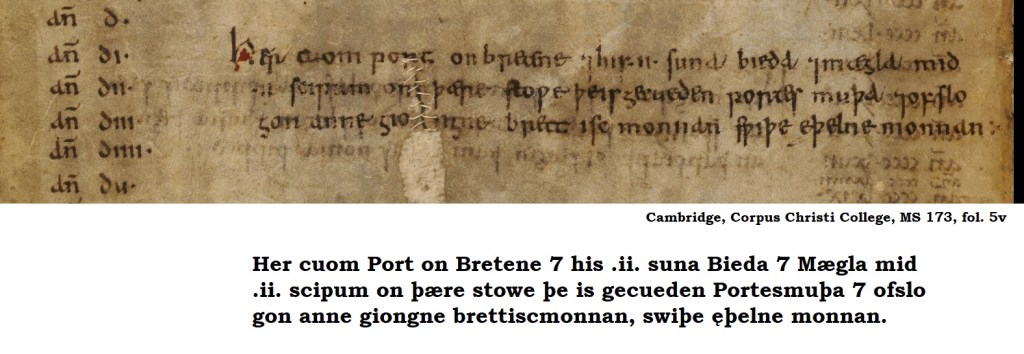 an̄ d.
an̄ di.
an̄ dii.
an̄ diii.
an̄ diiii.
an̄ du.
Her cuom port on bretene ⁊ his .ii. suna bieda ⁊ mægla mid
.ii. scipum on þære stowe þe is gecueden portes muþa ⁊ ofslo
gon anne giongne brettisc monnan swiþe eþelne monnan
Cambridge, Corpus Christi College, MS 173, fol. 5v
Her cuom Port on Bretene 7 his .ii. suna Bieda 7 Mægla mid
.ii. scipum on þære stowe þe is gecueden Portesmuþa 7 ofslo
gon anne giongne brettiscmonnan, swiþe ęþelne monnan.